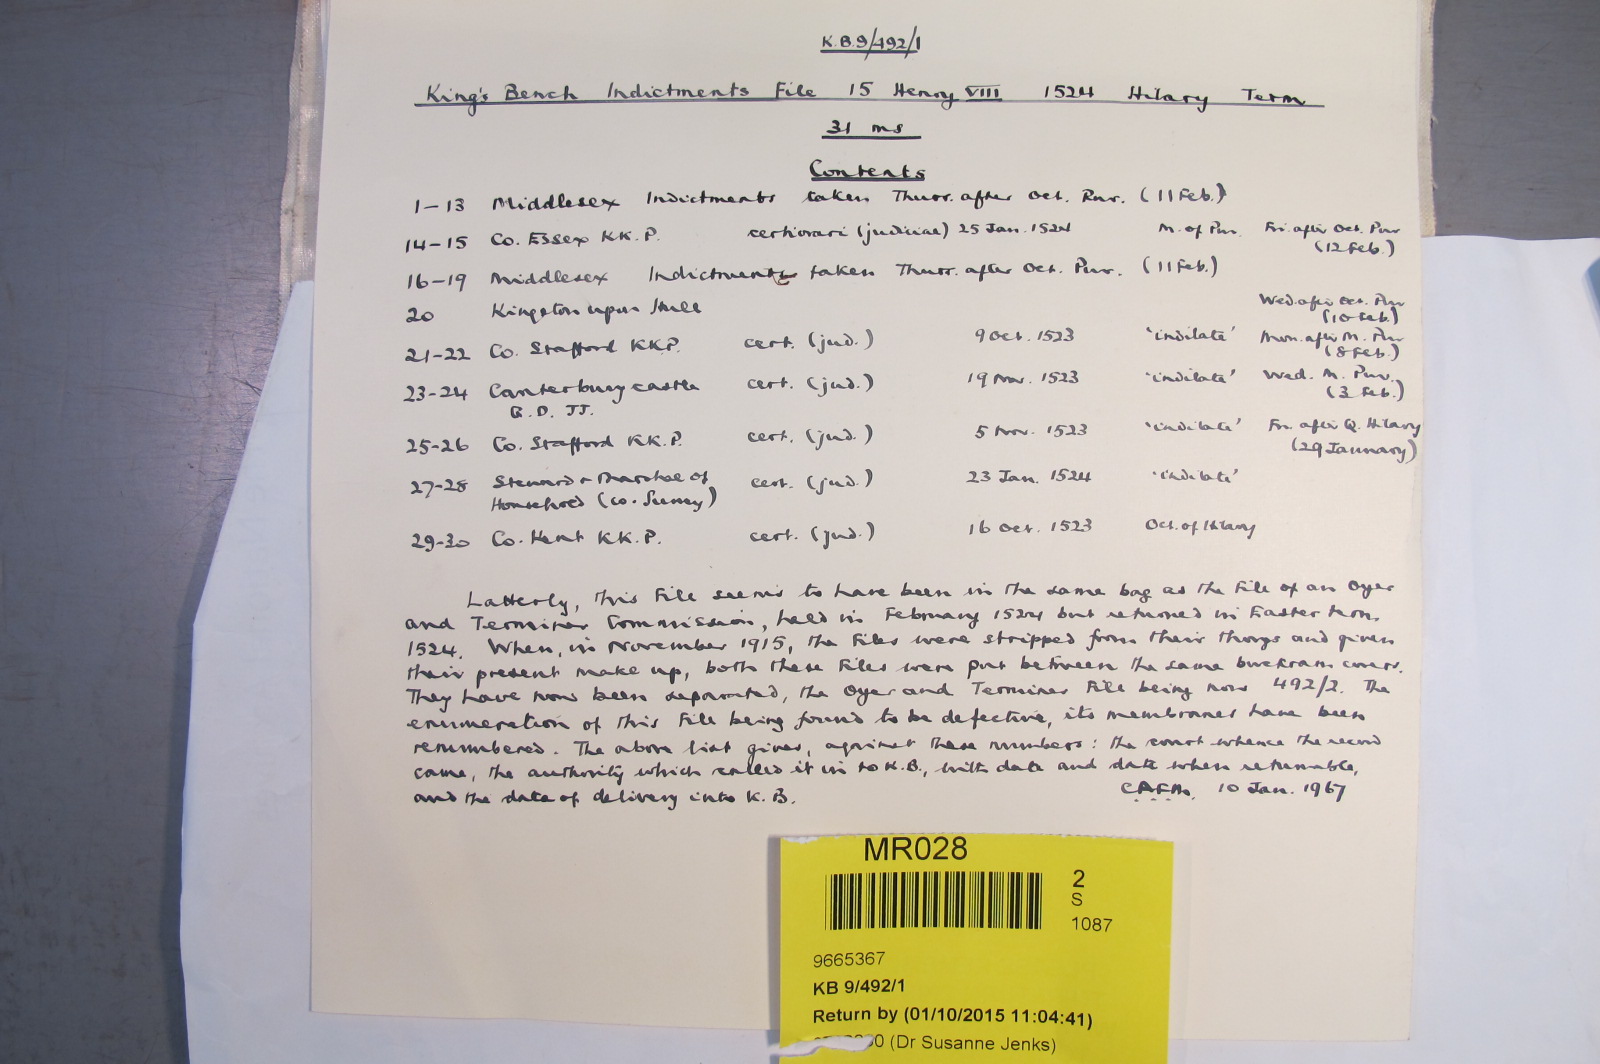 K.B.9/492/1
King's Bench Indictments File 15 Henry VIII 1524 Hilary Term
31 ms
Contents
1-13 Middlesex Indictments taken Thurs. after Oct. Pur. (11 Feb.)
14-15 Co. Essex KK.P. certiorari (judiciae) 25 Jan. 1524 M. of Pur. Fri. after Oct. Pur (12 Feb.)
16-19 Middlesex Indictments taken Thurs. after Oct. Pur. (11 Feb.)
20 Kingston upon Hull Wed. after Oct. Pur (10 Feb.)
21-22 Co. Stafford KK.P. cert. (jud.) 9 Oct. 1523 'indilate' Mon. after M. Pur (8 Feb.)
23-24 Canterbury castle cert. (jud.) 19 Nov. 1523 'indilate' Wed. M. Pur. (3 Feb.)
G.D. JJ.
25-26 Co. Stafford KK.P. cert. (jud.) 5 Nov. 1523 'indilate' Fri. after Q. Hilary (29 January)
27-28 Steward & Marshal of cert. (jud.) 23 Jan. 1524 'indilate'
Household (co. Surrey)
29-30 Co. Kent KK.P. cert. (jud.) 16 Oct. 1523 Oct. of Hilary
Latterly, this file seems to have been in the same bag as the file of an Oyer
and Terminer Commission, held in February 1524 but returned in Easter term,
1524. When, in November 1915, the files were stripped from their thongs and given
their present make up, both these files were put between the same buckram covers.
They have now been separated, the Oyer and Terminer file being now 492/2. The
enumeration of this file being found to be defective, its membranes have been
renumbered. The above list gives, against these numbers: the court whence the record
came, the authority which called it in to K.B., with date and date when returnable,
and the date of delivery into K.B. CAFM. 10 Jan. 1967
MR028
2
S
1087
9665367
KB 9/492/1
Return by (01/10/2015 11:04:41)
(Dr Susanne Jenks)